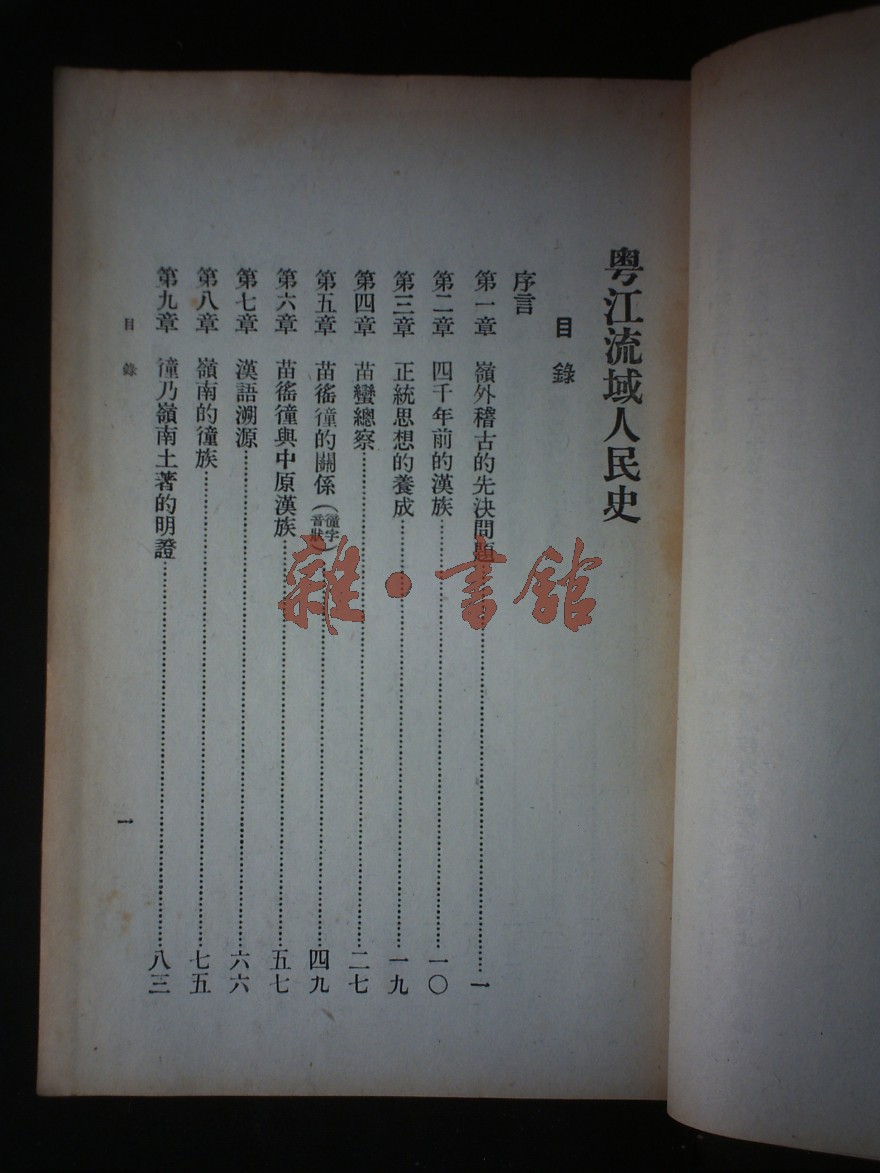 粤江流域人民史
目錄
序言
第一章 嶺外稽古的先决問題 一
第二章 四千年前的漢族 一〇
第三章 正統思想的養成 一九
第四章 苗蠻總察 二七
第五章 苗徭獞的關係（獞字音狀） 四九
第六章 苗徭獞與中原漢族 五七
第七章 漢語溯源 六六
第八章 嶺南的獞族 七五
第九章 獞乃嶺南土著的明證 八三
目錄 一
雜·書館